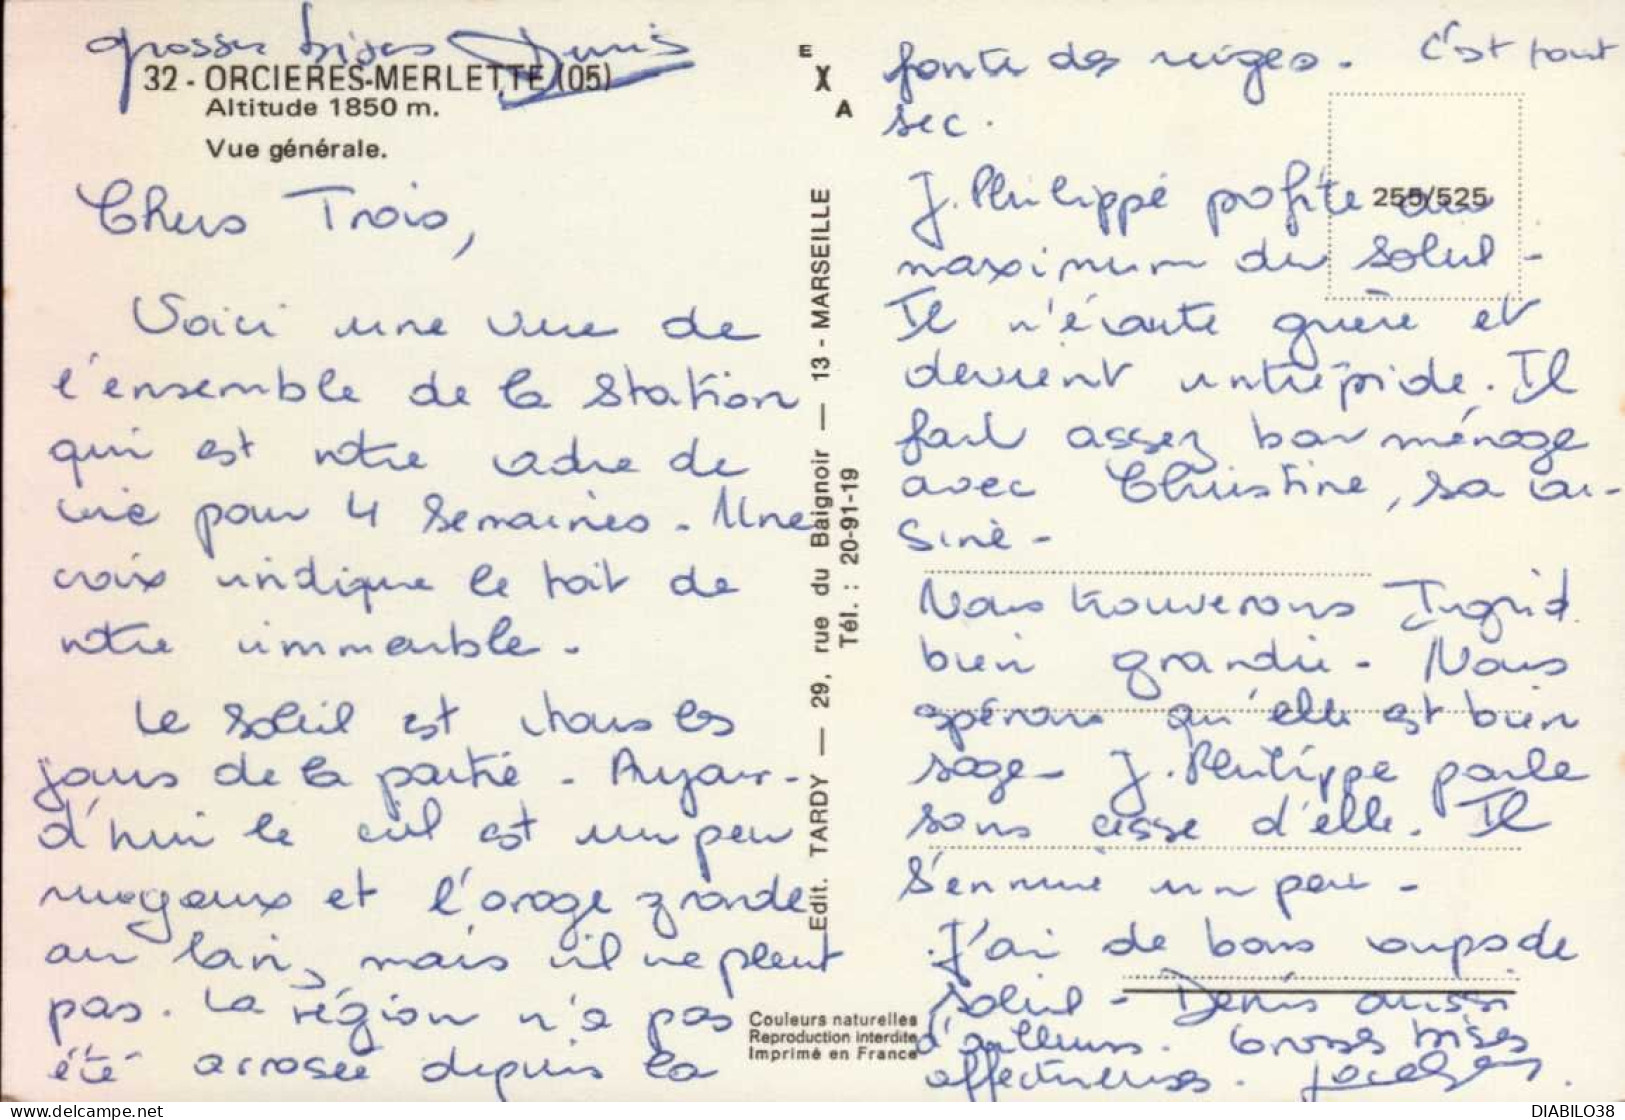 grosses bises Denis
32 - ORCIERES-MERLETTE (05)
Altitude 1850 m.
Vue générale.
Chers Trois,
Voici une vue de
l'ensemble de la station
qui est notre cadre de
vie pour 4 semaines. Une
croix indique le toit de
notre immeuble.
Le soleil est tous les
jours de la partie. Aujour-
d'hui le ciel est un peu
nuageux et l'orage gronde
au loin, mais il ne pleut
pas. La région n'a pas
été arrosée depuis la
E
X
A
Edit. TARDY — 29, rue du Baignoir — 13 - MARSEILLE
Tél. : 20-91-19
Couleurs naturelles
Reproduction interdite
Imprimé en France
fonte des neiges. C'est tout
sec.
255/525
J. Philippe profite au
maximum du soleil -
Il n'écoute guère et
devient intrépide. Il
fait assez bon ménage
avec Christine, sa cou-
sine -
Nous trouverons Ingrid
bien grandie - Nous
espérons qu'elle est bien
sage - J. Philippe parle
sans cesse d'elle. Il
s'ennuie un peu -
J'ai de bons coups de
soleil - Denis aussi
d'ailleurs. Grosses bises
affectueuses.
DIABILO38